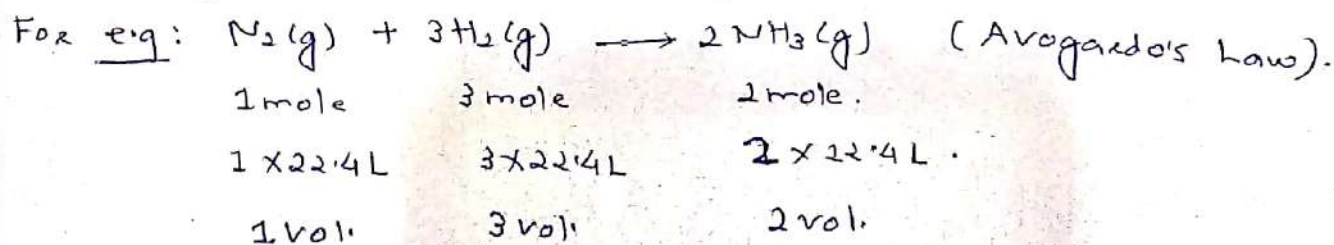 For e.g: N₂(g) + 3H₂(g) ⟶ 2NH₃(g) (Avogardo's Law).
1 mole 3 mole 2 mole.
1 X 22.4 L 3 X 22.4 L 2 X 22.4 L.
1 vol. 3 vol. 2 vol.